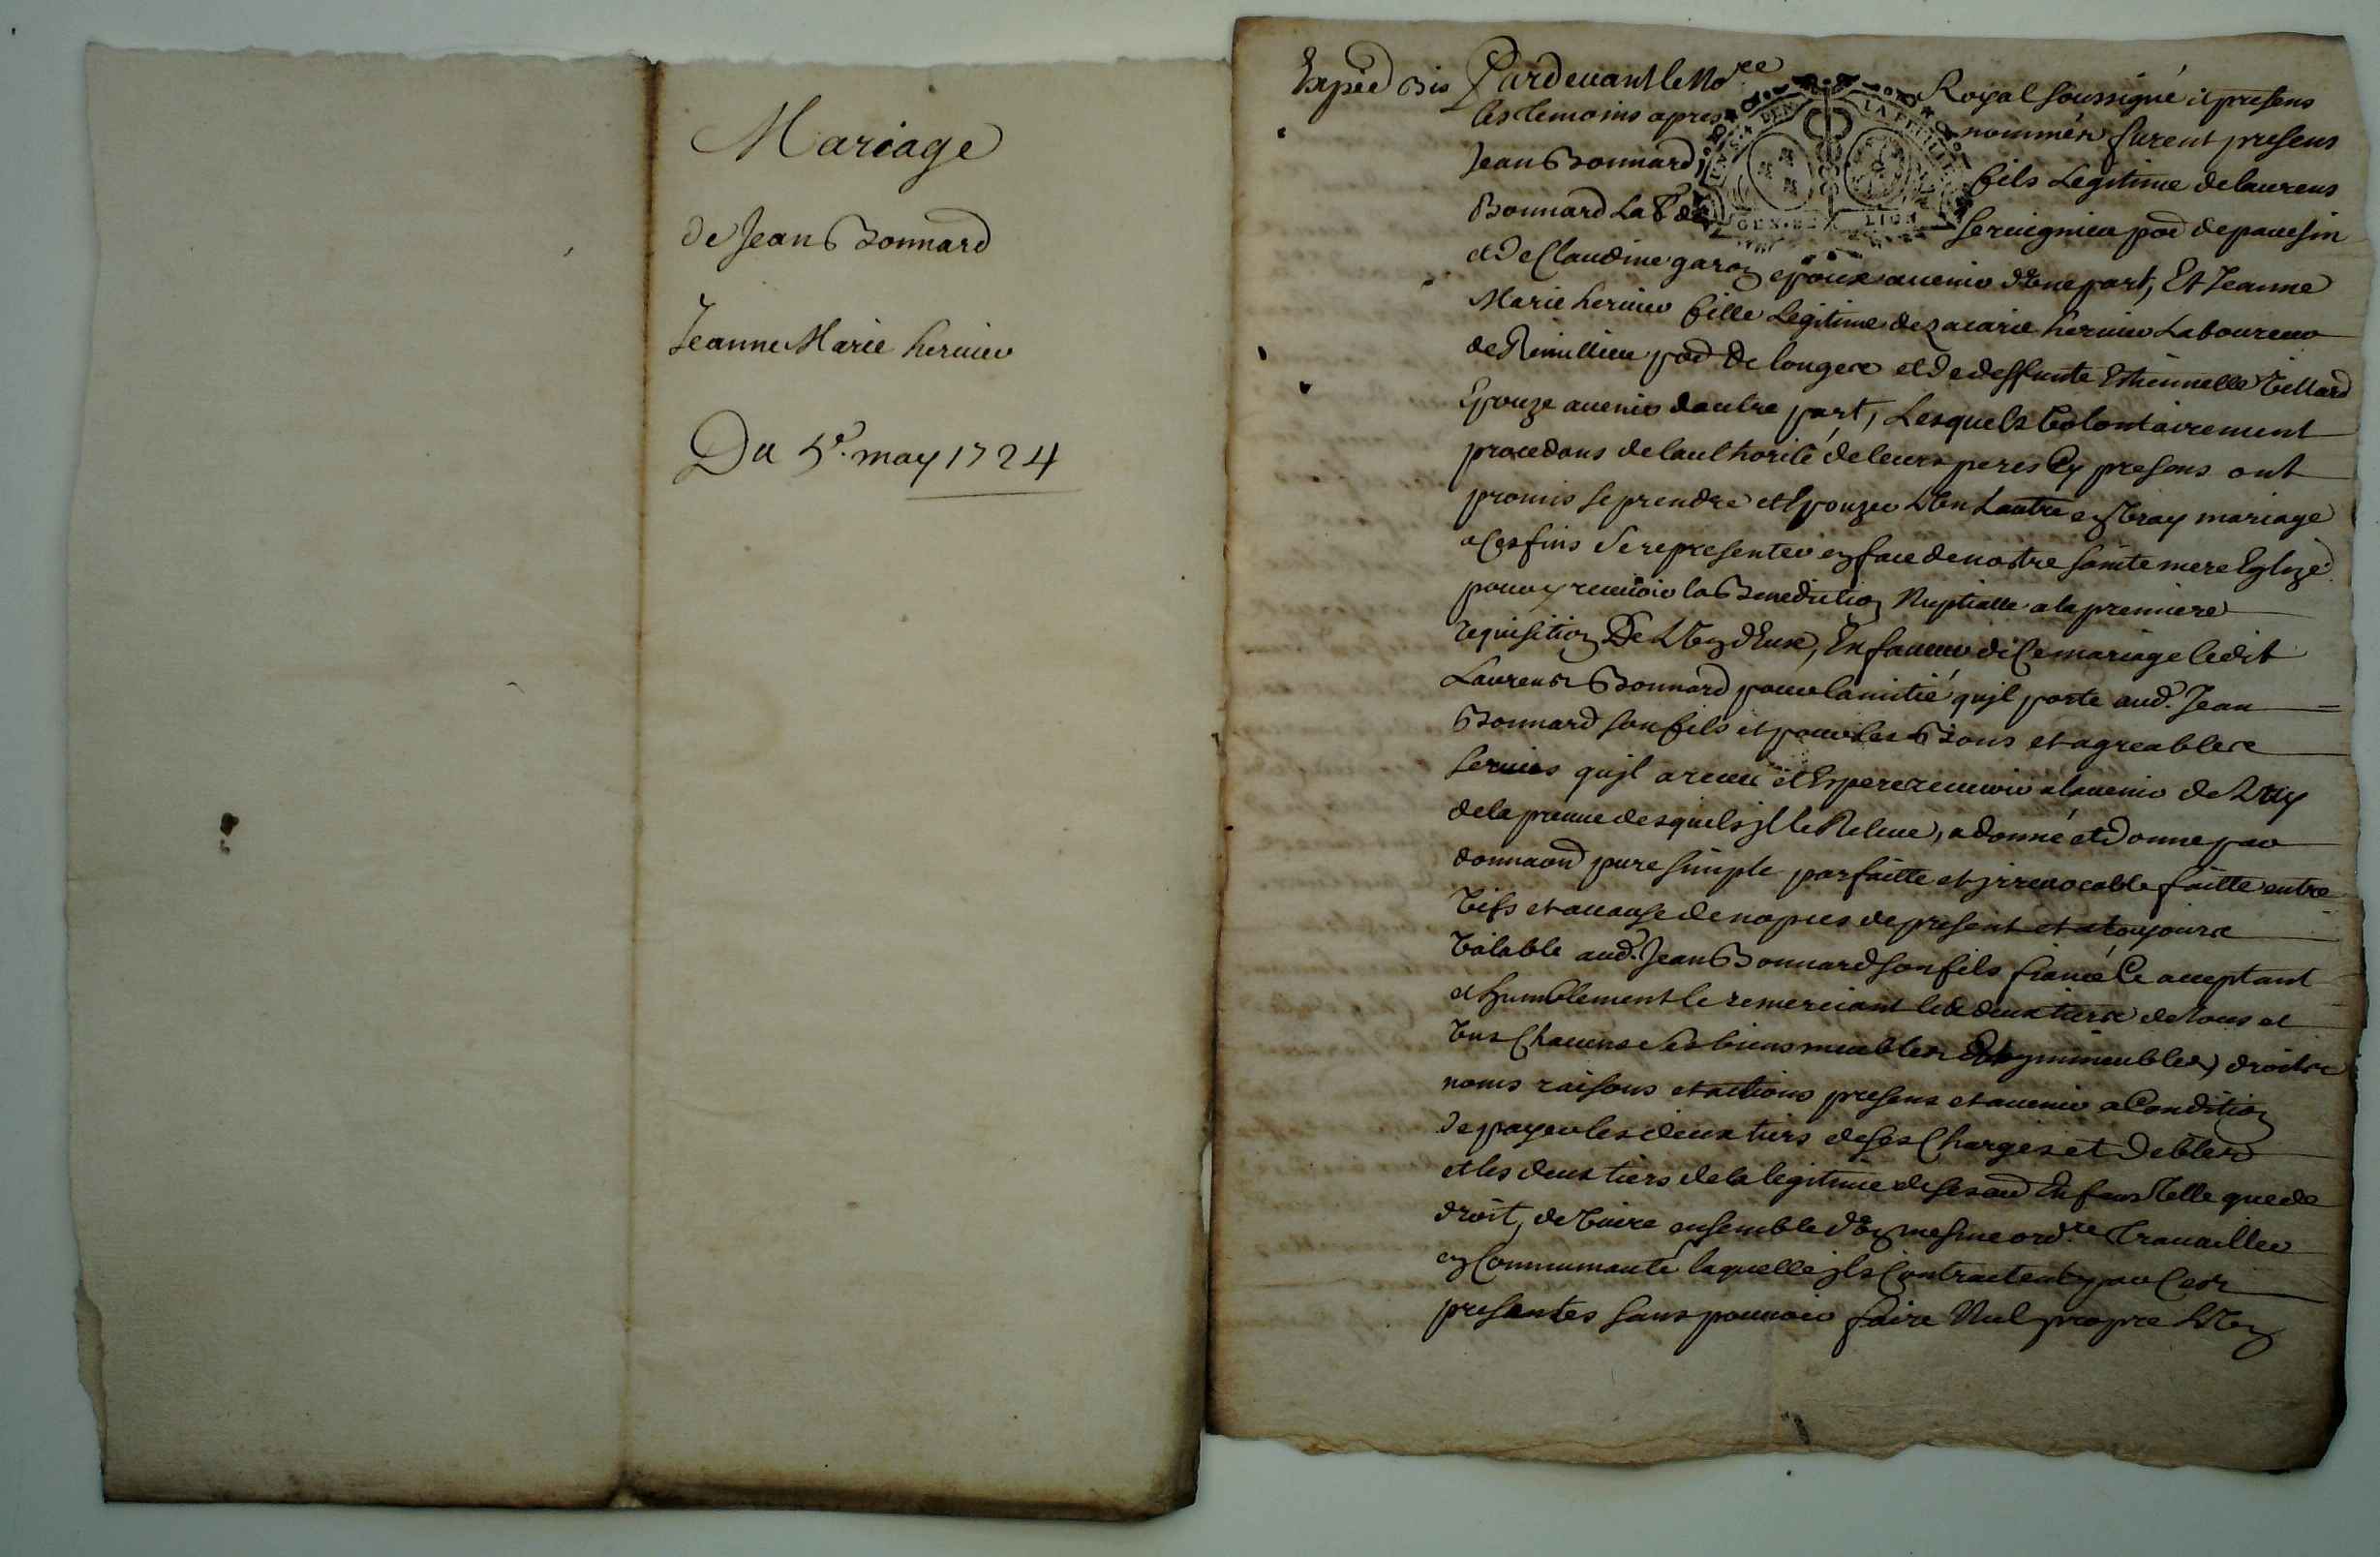 Mariage
de Jean Bonnard
Jeanne Marie hervier
Du 5e. may 1724
Expéd Bis Pardevant le No.re Royal soussigné et presens
les temoins apres nommés furent presens
Jean Bonnard fils Legitime de laurens
Bonnard Lab.r de pad de pavesin
et de Claudine garon epoux avenir d'une part, Et Jeanne
Marie hervier fille Legitime de zacarie hervier Laboureur
de Remillieu pad de longes et de deffunte Ethiennette villard
Epouze avenir dautre part, Lesquels volontairement
procedans de lauthorité de leurs peres Cy presens ont
promis se prendre et Epouzer L'un Lautre en vray mariage
a Ces fins se representer en face de nostre sainte mere Eglize
pour y recevoir la Benediction Nuptialle a la premiere
requisition De L'un d'Eux, En faveur de Ce mariage ledit
Laurens Bonnard pour lamitié qu'jl porte aud. Jean =
Bonnard son fils et pour les Bons et agreables
services qu'jl a receu et Espere recevoir a lavenir de Luy
de la preuve desquels jl le Releve, a donné et donne par
donnaon pure simple parfaitte et jrrevocable faitte entre
vifs et a cause de nopces de present et a toujours
valable aud. Jean Bonnard son fils fiancé Ce acceptant
et humblement le remerciant les deux tiers de tous et
uns Chacuns ses biens meubles et jmmeubles, droits
noms raisons et actions presens et avenir a Condition
de payer les deux tiers de ses Charges et debtes
et les deux tiers de la legitime de ses Enfans telle que de
droit, de vivre ensemble d'un mesme ord.re travailler
en Communauté laquelle jls Contractent par Ces
presentes sans pouvoir faire Nul propre L'un
LA FEUILLE
GEN. DE LION